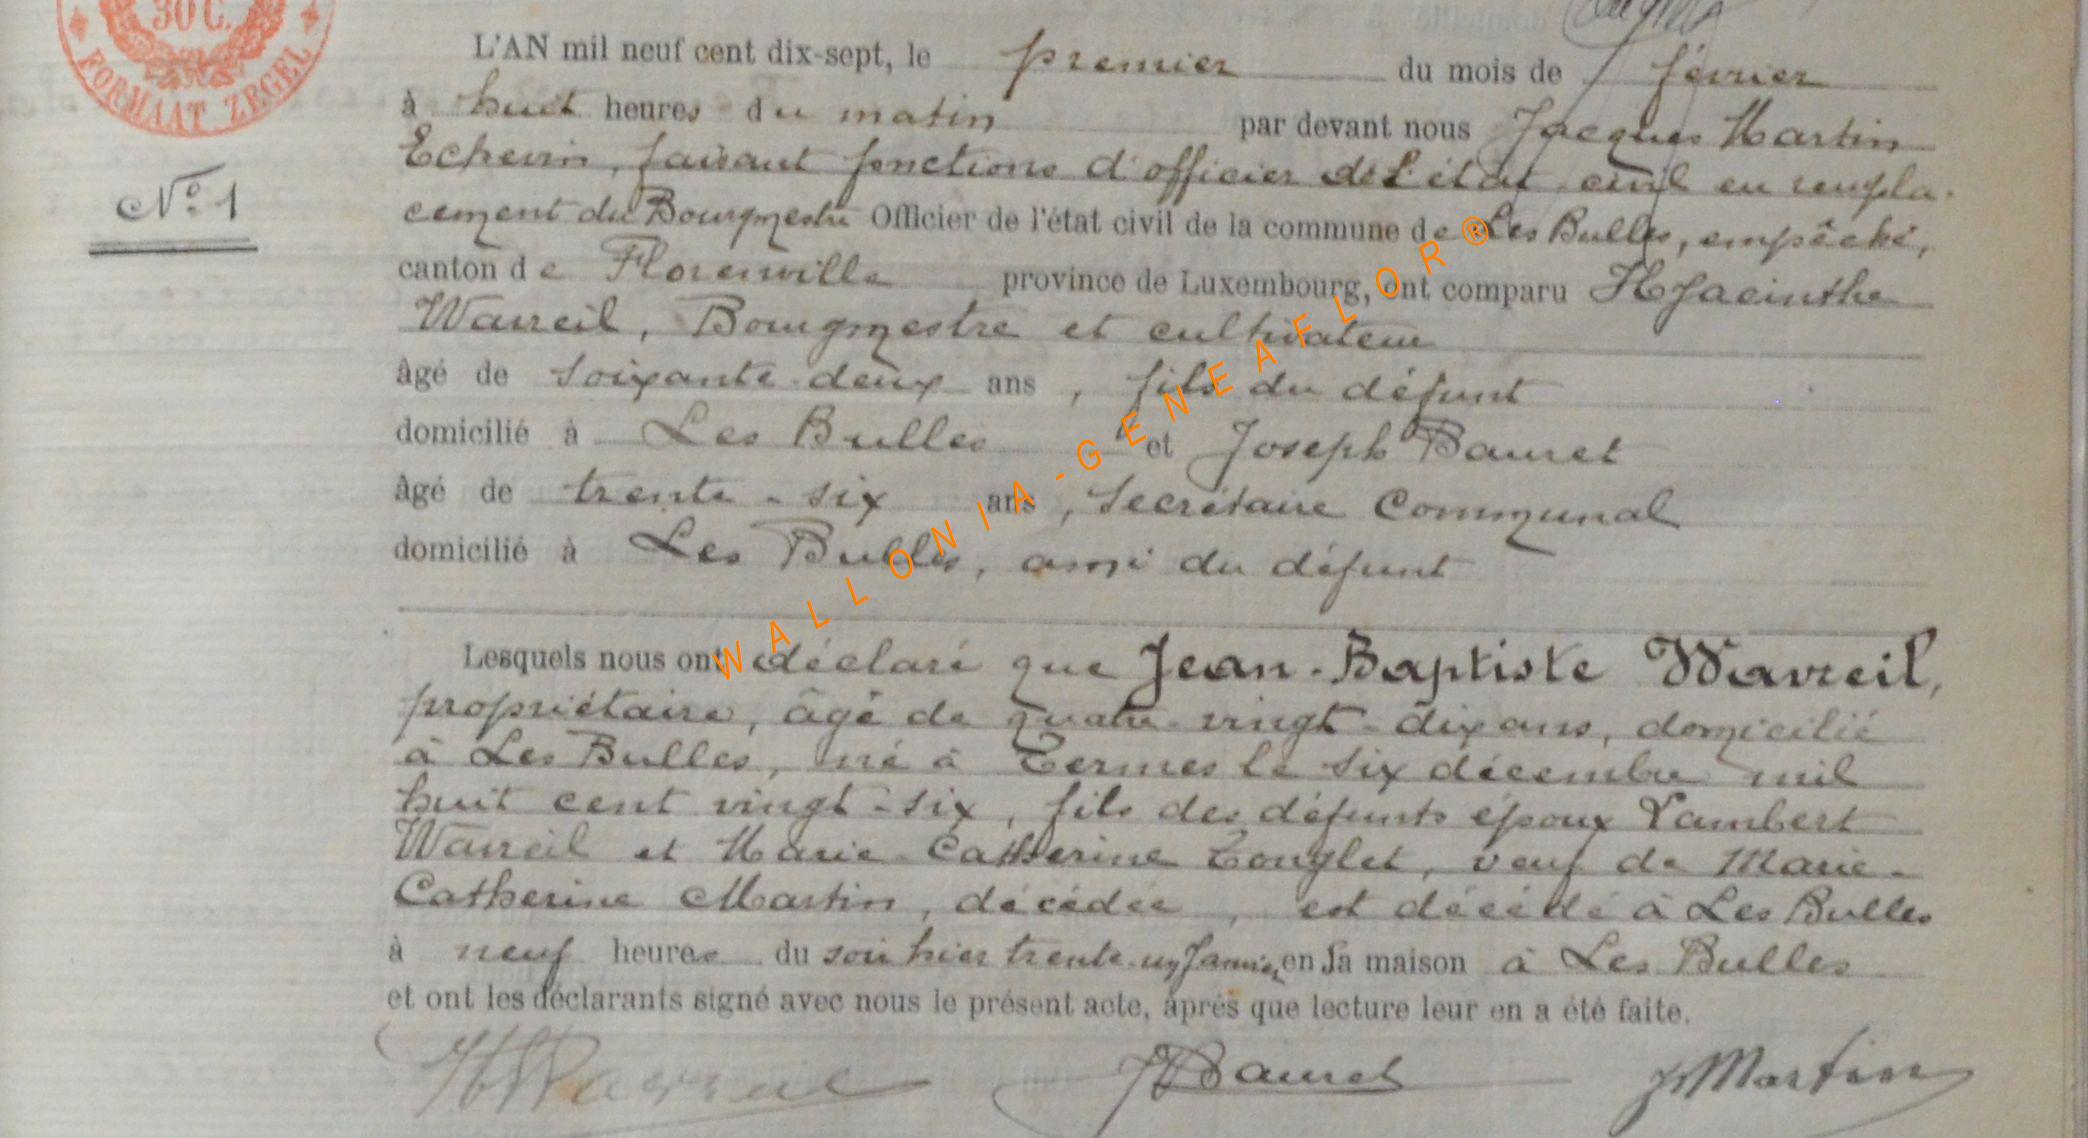 30 C.
FORMAAT ZEGEL
L'AN mil neuf cent dix-sept, le premier du mois de février
à huit heures du matin par devant nous Jacques Martin
Echevin, faisant fonctions d'officier de l'état civil en rempla-
N° 1
cement du Bourgmestre Officier de l'état civil de la commune de Les Bulles, empêché,
canton de Florenville province de Luxembourg, ont comparu Hyacinthe
Wavreil, Bourgmestre et cultivateur
âgé de soixante-deux ans, fils du défunt
domicilié à Les Bulles et Joseph Bauret
âgé de trente-six ans, Secrétaire Communal
domicilié à Les Bulles, ami du défunt
Lesquels nous ont déclaré que Jean-Baptiste Wavreil,
propriétaire, âgé de quatre-vingt-dix ans, domicilié
à Les Bulles, né à Termes le six décembre mil
huit cent vingt-six, fils des défunts époux Lambert
Wavreil et Marie-Catherine Conglet, veuf de Marie-
Catherine Martin, décédée, est décédé à Les Bulles
à neuf heures du soir hier trente-un Janvier en sa maison à Les Bulles
et ont les déclarants signé avec nous le présent acte, après que lecture leur en a été faite.
H Wavreil J Bauret J Martin
WALLONIA-GENEAFLOR®